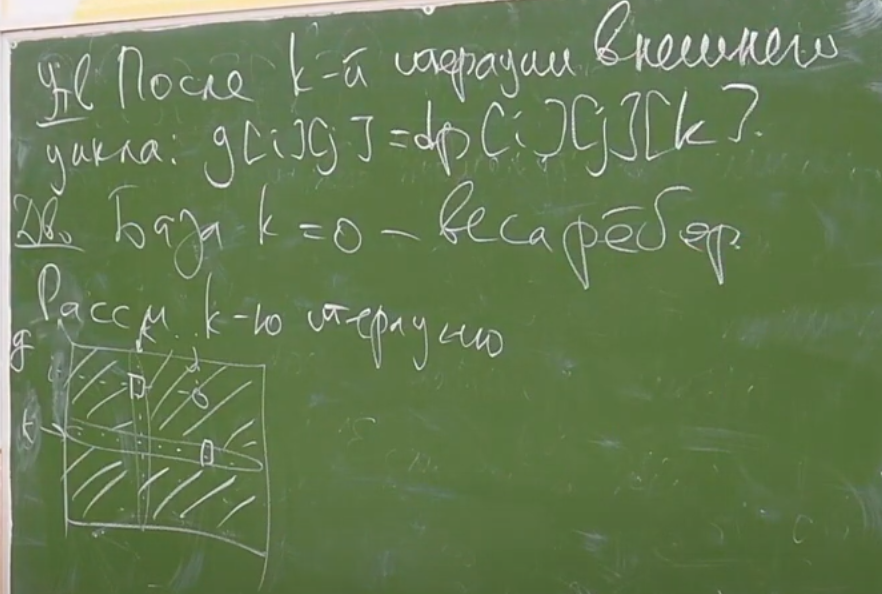 Утв После k-й итерации внешнего
цикла: g[i][j] = dp[i][j][k].
Дв. База k = 0 – веса рёбер.
Рассм. k-ю итерацию
k j
g
i
k